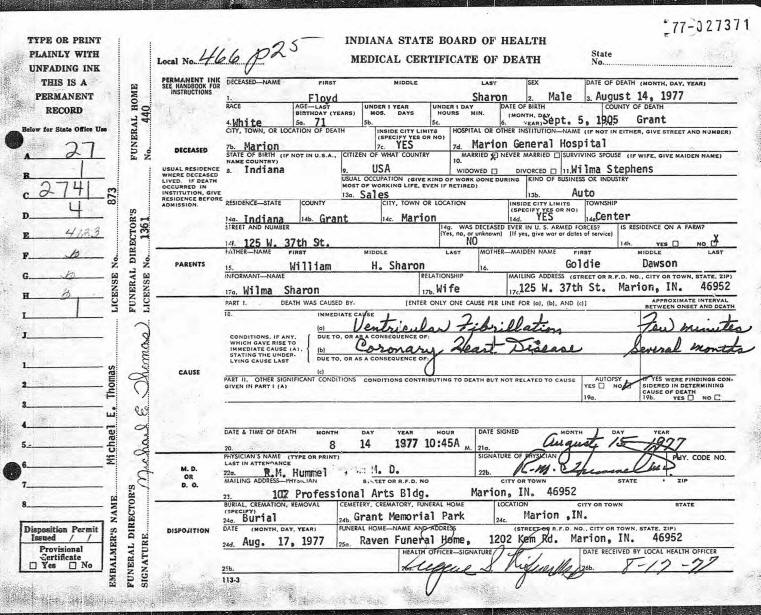 77-027371
TYPE OR PRINT
PLAINLY WITH
UNFADING INK
THIS IS A
PERMANENT
RECORD
Below for State Office Use
A 27
B 1
C 2741
D 4
E 4123
F
G
H
I 1
J
1
2
3
4
5
6
7
8
Disposition Permit
Issued / /
Provisional
Certificate
☐ Yes ☐ No
EMBALMER'S NAME Michael E. Thomas LICENSE No. 873
FUNERAL DIRECTOR'S SIGNATURE Michael E Thomas FUNERAL DIRECTOR'S LICENSE No. 1361 FUNERAL HOME No. 440
INDIANA STATE BOARD OF HEALTH
MEDICAL CERTIFICATE OF DEATH
Local No. 466 p25
State No.
PERMANENT INK
SEE HANDBOOK FOR
INSTRUCTIONS
DECEASED—NAME FIRST MIDDLE LAST SEX DATE OF DEATH (MONTH, DAY, YEAR)
1. Floyd Sharon 2. Male 3. August 14, 1977
RACE AGE—LAST BIRTHDAY (YEARS) UNDER 1 YEAR MOS. DAYS UNDER 1 DAY HOURS MIN. DATE OF BIRTH (MONTH, DAY, YEAR) COUNTY OF DEATH
4. White 5a. 71 5b. 5c. 6. Sept. 5, 1905 Grant
CITY, TOWN, OR LOCATION OF DEATH INSIDE CITY LIMITS (SPECIFY YES OR NO) HOSPITAL OR OTHER INSTITUTION—NAME (IF NOT IN EITHER, GIVE STREET AND NUMBER)
DECEASED
7b. Marion 7c. YES 7d. Marion General Hospital
USUAL RESIDENCE
WHERE DECEASED
LIVED. IF DEATH
OCCURRED IN
INSTITUTION, GIVE
RESIDENCE BEFORE
ADMISSION.
STATE OF BIRTH (IF NOT IN U.S.A., NAME COUNTRY) CITIZEN OF WHAT COUNTRY MARRIED ☒ NEVER MARRIED ☐ SURVIVING SPOUSE (IF WIFE, GIVE MAIDEN NAME)
8. Indiana 9. USA 10. WIDOWED ☐ DIVORCED ☐ 11. Wilma Stephens
USUAL OCCUPATION (GIVE KIND OF WORK DONE DURING MOST OF WORKING LIFE, EVEN IF RETIRED) KIND OF BUSINESS OR INDUSTRY
13a. Sales 13b. Auto
RESIDENCE—STATE COUNTY CITY, TOWN OR LOCATION INSIDE CITY LIMITS (SPECIFY YES OR NO) TOWNSHIP
14a. Indiana 14b. Grant 14c. Marion 14d. YES 14e. Center
STREET AND NUMBER 14g. WAS DECEASED EVER IN U.S. ARMED FORCES? (Yes, no, or unknown) (If yes, give war or dates of service) IS RESIDENCE ON A FARM?
14f. 125 W. 37th St. NO 14h. YES ☐ NO ☐ X
PARENTS
FATHER—NAME FIRST MIDDLE LAST MOTHER—MAIDEN NAME FIRST MIDDLE LAST
15. William H. Sharon 16. Goldie Dawson
INFORMANT—NAME RELATIONSHIP MAILING ADDRESS (STREET OR R.F.D. NO., CITY OR TOWN, STATE, ZIP)
17a. Wilma Sharon 17b. Wife 17c. 125 W. 37th St. Marion, IN. 46952
PART I. DEATH WAS CAUSED BY: [ENTER ONLY ONE CAUSE PER LINE FOR (a), (b), AND (c)] APPROXIMATE INTERVAL BETWEEN ONSET AND DEATH
18. IMMEDIATE CAUSE
(a) Ventricular Fibrillation Few minutes
CONDITIONS, IF ANY,
WHICH GAVE RISE TO
IMMEDIATE CAUSE (A),
STATING THE UNDER-
LYING CAUSE LAST
DUE TO, OR AS A CONSEQUENCE OF:
(b) Coronary Heart Disease Several months
DUE TO, OR AS A CONSEQUENCE OF:
(c)
CAUSE
PART II. OTHER SIGNIFICANT CONDITIONS CONDITIONS CONTRIBUTING TO DEATH BUT NOT RELATED TO CAUSE GIVEN IN PART I (A)
AUTOPSY YES ☐ NO ☑ 19a.
IF YES WERE FINDINGS CONSIDERED IN DETERMINING CAUSE OF DEATH 19b. YES ☐ NO ☐
DATE & TIME OF DEATH MONTH DAY YEAR HOUR DATE SIGNED MONTH DAY YEAR
20. 8 14 1977 10:45A M. 21a. August 15 1977
M. D.
OR
D. O.
PHYSICIAN'S NAME (TYPE OR PRINT) LAST IN ATTENDANCE SIGNATURE OF PHYSICIAN PHY. CODE NO.
22a. R.M. Hummel M. D. 22b. R.M. Hummel
MAILING ADDRESS—PHYSICIAN STREET OR R.F.D. NO CITY OR TOWN STATE ZIP
23. 102 Professional Arts Bldg. Marion, IN. 46952
DISPOSITION
BURIAL, CREMATION, REMOVAL (SPECIFY) CEMETERY, CREMATORY, FUNERAL HOME LOCATION CITY OR TOWN STATE
24a. Burial 24b. Grant Memorial Park 24c. Marion ,IN.
DATE (MONTH, DAY, YEAR) FUNERAL HOME—NAME AND ADDRESS (STREET OR R.F.D. NO., CITY OR TOWN, STATE, ZIP)
24d. Aug. 17, 1977 25a. Raven Funeral Home, 1202 Kem Rd. Marion, IN. 46952
HEALTH OFFICER—SIGNATURE DATE RECEIVED BY LOCAL HEALTH OFFICER
25b. 26b. 8-17-77
113-3